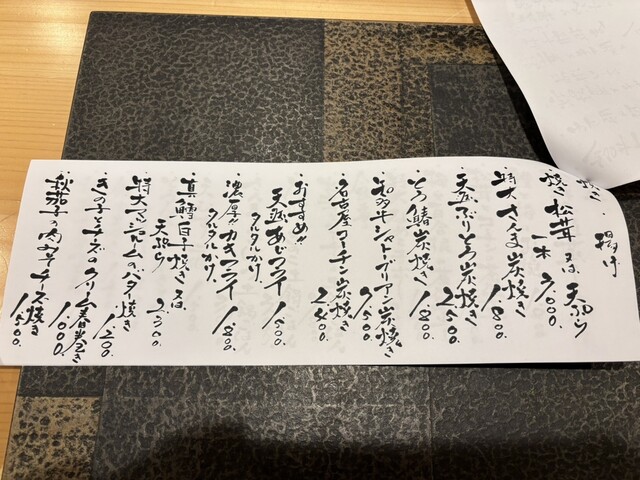 焼き・揚げ
・焼き松茸 又は 天ぷら
一本 7,000.
・特大さんま炭焼き
1,800.
・天然ぶりとろ炭焼き
2,500.
・とろ鯖炭焼き
1,800.
・和牛シャトーブリアン炭焼き
7,500.
・名古屋コーチン炭焼き
・おすすめ!!
天然あじフライ
タルタルかけ
1,500.
・濃厚カキフライ
タルタルかけ
1,800.
・真鱈白子焼き 又は
天ぷら
2,500.
・特大マッシュルームのバター焼き
1,200.
・きの子とチーズのクリーム春巻き
1,000.
・秋茄子の肉みそチーズ焼き
1,500.